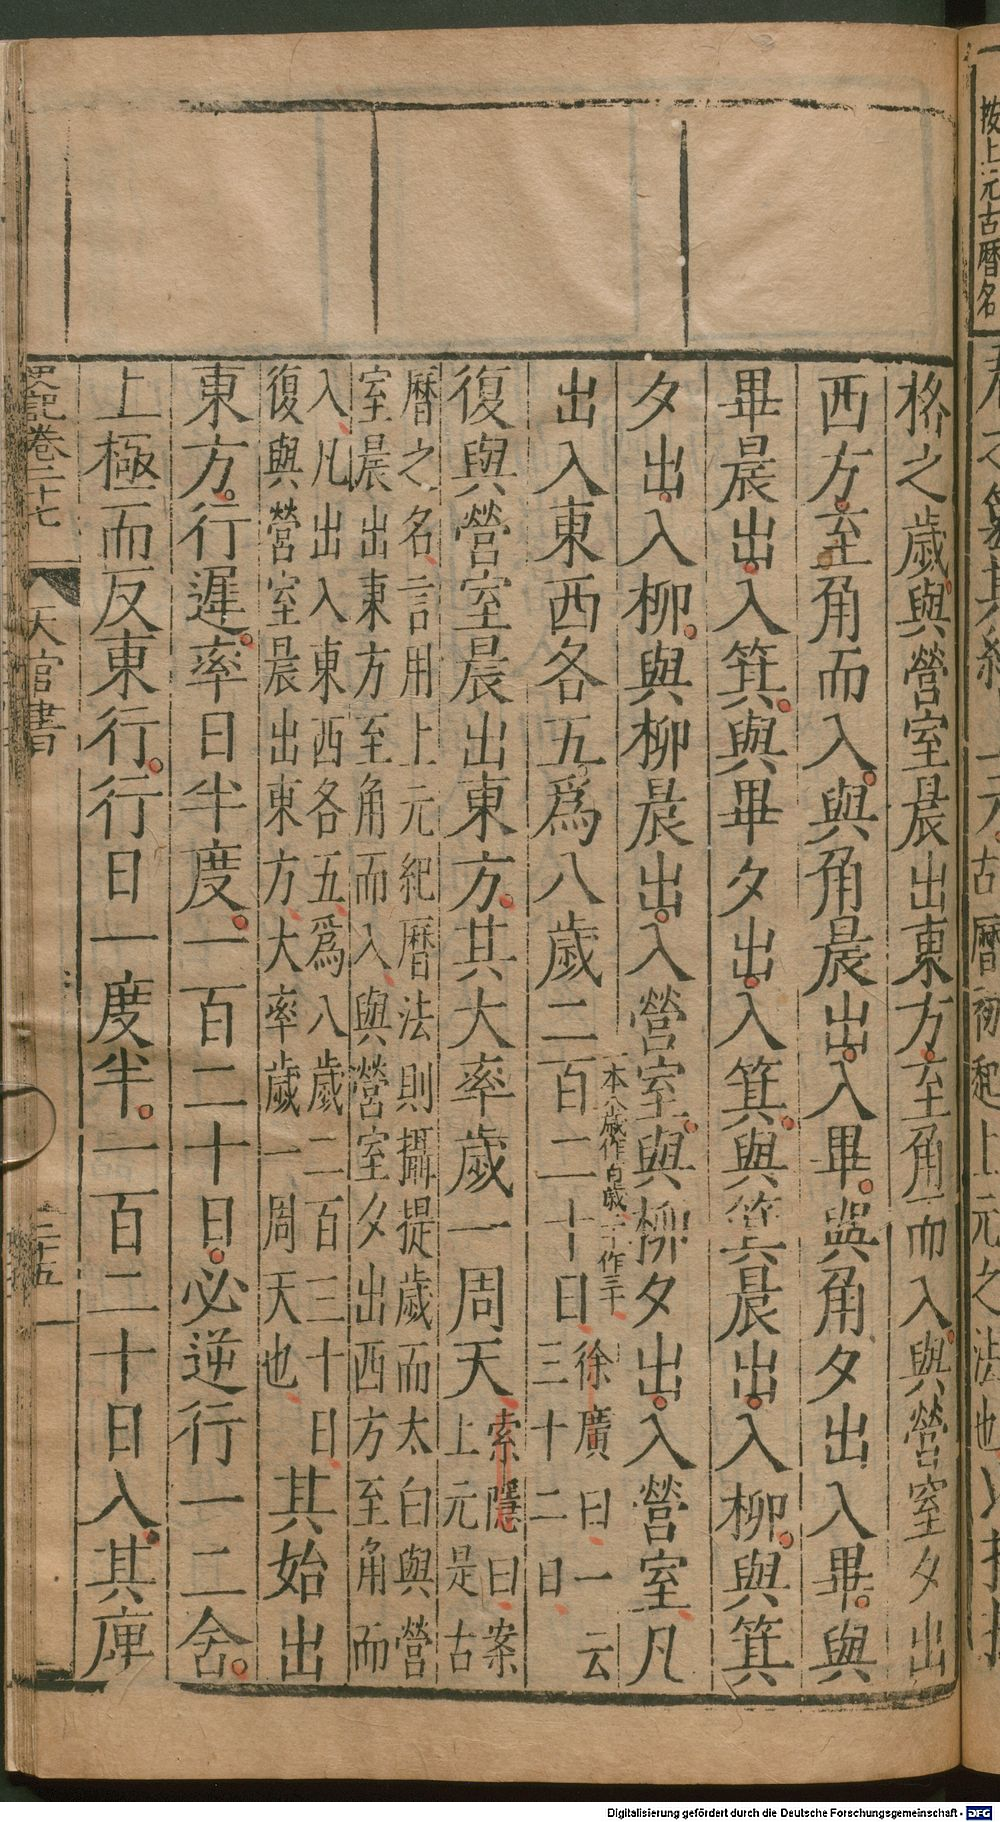 按上元古曆名
古曆初起上元之法也以
格之歲與營室晨出東方至角而入與營室夕出
西方至角而入與角晨出入畢與角夕出入畢與
畢晨出入箕與畢夕出入箕與箕晨出入柳與箕
夕出入柳與柳晨出入營室與柳夕出入營室凡
出入東西各五爲八歲二百二十日
一本八歲作百歲二十作三十
徐廣曰一云
三十二日
復與營室晨出東方其大率歲一周天
索隱曰案
上元是古
曆之名言用上元紀曆法則攝提歲而太白與營
室晨出東方至角而入與營室夕出西方至角而
入凡出入東西各五爲八歲二百三十日
復與營室晨出東方大率歲一周天也
其始出
東方行遲率日半度一百二十日必逆行一二舍
上極而反東行行日一度半一百二十日入其庫
史記卷二十七 天官書 三十五
Digitalisierung gefördert durch die Deutsche Forschungsgemeinschaft - DFG